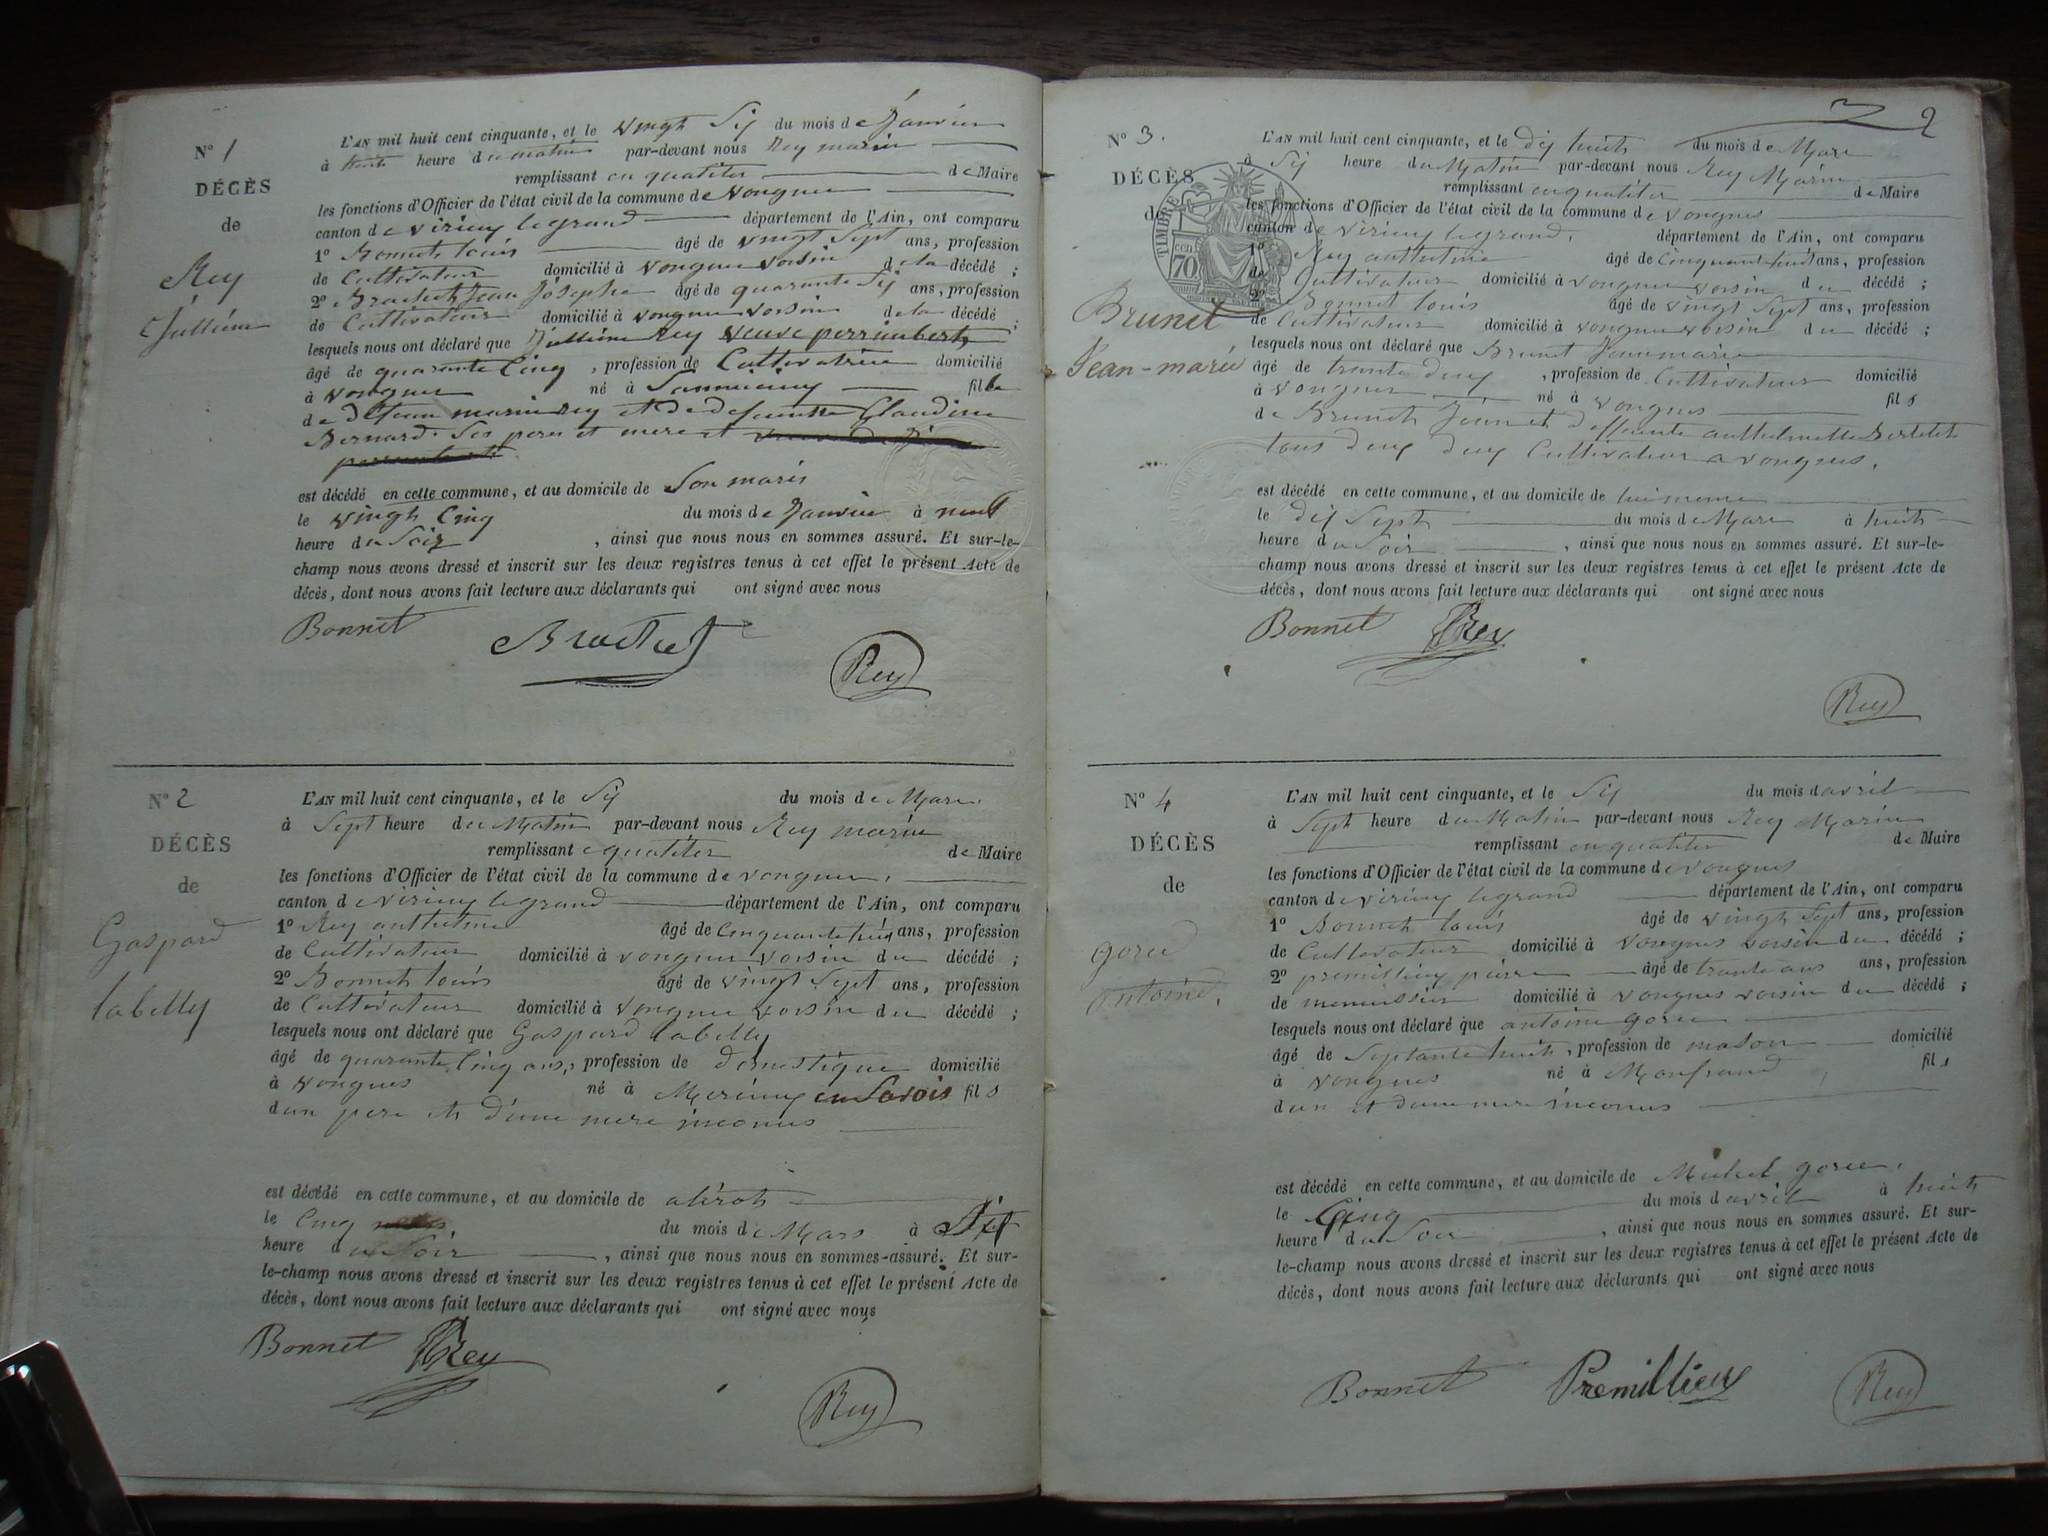 N° 1
DÉCÈS
de
Rey
Jullienne
L'AN mil huit cent cinquante, et le vingt Six du mois de Janvier
à heure du matin par-devant nous Rey marin
remplissant en qualiter de Maire
les fonctions d'Officier de l'état civil de la commune de vongnes
canton de virieu le grand département de l'Ain, ont comparu
1° Bonnet louis âgé de vingt Sept ans, profession
de Cultivateur domicilié à vongnes voisin de la décédé ;
2° Brachet Jean Josephe âgé de quarante Six ans, profession
de Cultivateur domicilié à vongnes voisin de la décédé ;
lesquels nous ont déclaré que Rey veuve perrimbert
âgé de quarante Cinq , profession de Cultivatrice domicilié
à vongnes né à fille
de Jean marin Rey et de deffeunte Claudine
Bernard Ses pere et mere et
est décédé en cette commune, et au domicile de Son maris
le vingt Cinq du mois de Janvier à neuf
heure du Soir , ainsi que nous nous en sommes assuré. Et sur-le-
champ nous avons dressé et inscrit sur les deux registres tenus à cet effet le présent Acte de
décès, dont nous avons fait lecture aux déclarants qui ont signé avec nous
Bonnet Brachet Rey
N° 2
DÉCÈS
de
Gaspard
labelly
L'AN mil huit cent cinquante, et le Six du mois de Mars
à Sept heure du Matin par-devant nous Rey marin
remplissant qualiter de Maire
les fonctions d'Officier de l'état civil de la commune de vongnes,
canton de virieu le grand département de l'Ain, ont comparu
1° Rey anthelme âgé de Cinquante huit ans, profession
de Cultivateur domicilié à vongnes voisin du décédé ;
2° Bonnet louis âgé de vingt Sept ans, profession
de Cultivateur domicilié à vongnes voisin du décédé ;
lesquels nous ont déclaré que Gaspard labelly
âgé de quarante Cinq ans, profession de domestique domicilié
à vongnes né à en Savois fils
d'un pere et d'une mere inconus
est décédé en cette commune, et au domicile de
le Cinq du mois de Mars à
heure du Soir , ainsi que nous nous en sommes assuré. Et sur-
le-champ nous avons dressé et inscrit sur les deux registres tenus à cet effet le présent Acte de
décès, dont nous avons fait lecture aux déclarants qui ont signé avec nous
Bonnet Rey Rey
2
N° 3.
DÉCÈS
de
Brunet
Jean-marie
TIMBRE
70
L'AN mil huit cent cinquante, et le dix huit du mois de Mars
à Six heure du Matin par-devant nous Rey Marin
remplissant en qualiter de Maire
les fonctions d'Officier de l'état civil de la commune de vongnes
canton de virieu le grand, département de l'Ain, ont comparu
1° Rey anthelme âgé de Cinquante huit ans, profession
de Cultivateur domicilié à vongnes voisin du décédé ;
2° Bonnet louis âgé de vingt Sept ans, profession
de Cultivateur domicilié à vongnes voisin du décédé ;
lesquels nous ont déclaré que Brunet Jean marie
âgé de trante deux , profession de Cultivateur domicilié
à vongnes né à vongnes fils
de Brunet Jean et deffeunte anthelmette
tous deux Cultivateur a vongnes.
est décédé en cette commune, et au domicile de lui meme
le dix Sept du mois de Mars à huit
heure du Soir , ainsi que nous nous en sommes assuré. Et sur-le-
champ nous avons dressé et inscrit sur les deux registres tenus à cet effet le présent Acte de
décès, dont nous avons fait lecture aux déclarants qui ont signé avec nous
Bonnet Rey
Rey
N° 4
DÉCÈS
de
goree
antoine,
L'AN mil huit cent cinquante, et le Six du mois d'avril
à Sept heure du Matin par-devant nous Rey Marin
remplissant en qualiter de Maire
les fonctions d'Officier de l'état civil de la commune de vongnes
canton de virieu le grand département de l'Ain, ont comparu
1° Bonnet louis âgé de vingt Sept ans, profession
de Cultivateur domicilié à vongnes voisin du décédé ;
2° premillieu pierre âgé de trante ans ans, profession
de menuisier domicilié à vongnes voisin du décédé ;
lesquels nous ont déclaré que antoine goree
âgé de Septante huit , profession de mason domicilié
à vongnes né à Monfrand fils
d'un et d'une mere inconus
est décédé en cette commune, et au domicile de Michel goree.
le Cinq du mois d'avril à huit
heure du Soir , ainsi que nous nous en sommes assuré. Et sur-
le-champ nous avons dressé et inscrit sur les deux registres tenus à cet effet le présent Acte de
décès, dont nous avons fait lecture aux déclarants qui ont signé avec nous
Bonnet Premillieu Rey